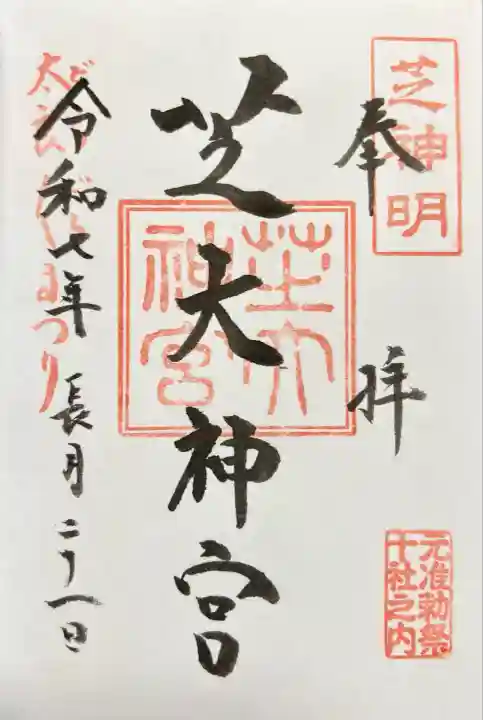 芝神明
奉拝
元准勅祭
十社之内
芝大神宮
芝大
神宮
令和七年 長月 二十一日